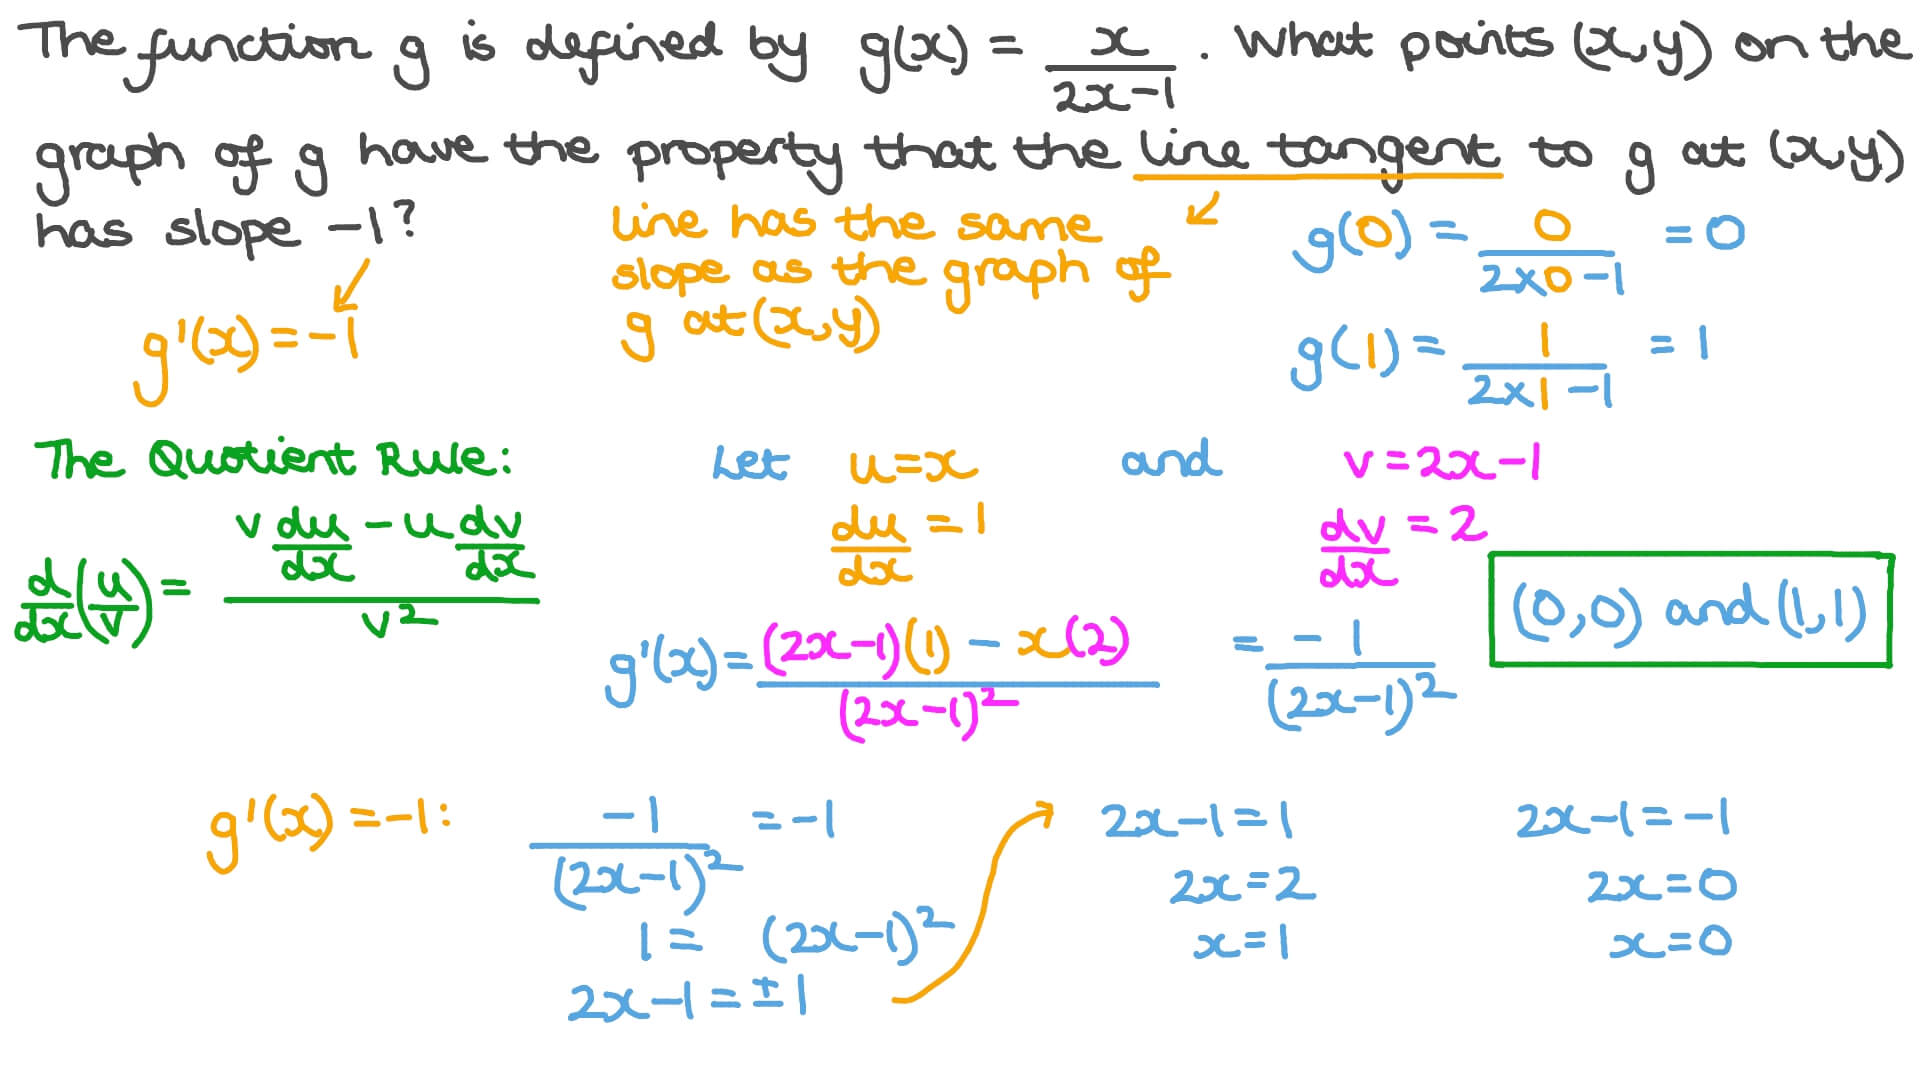 The function g is defined by g(x) = x/(2x-1). What points (x,y) on the
graph of g have the property that the line tangent to g at (x,y)
has slope -1?
line has the same
slope as the graph of
g at (x,y)
g'(x) = -1
g(0) = 0/(2x0-1) = 0
g(1) = 1/(2x1-1) = 1
The Quotient Rule:
d/dx (u/v) = (v du/dx - u dv/dx)/v²
Let u=x and v=2x-1
du/dx = 1 dv/dx = 2
g'(x) = ((2x-1)(1) - x(2))/(2x-1)² = -1/(2x-1)²
(0,0) and (1,1)
g'(x) = -1:
-1/(2x-1)² = -1
1 = (2x-1)²
2x-1 = ±1
2x-1 = 1
2x = 2
x = 1
2x-1 = -1
2x = 0
x = 0